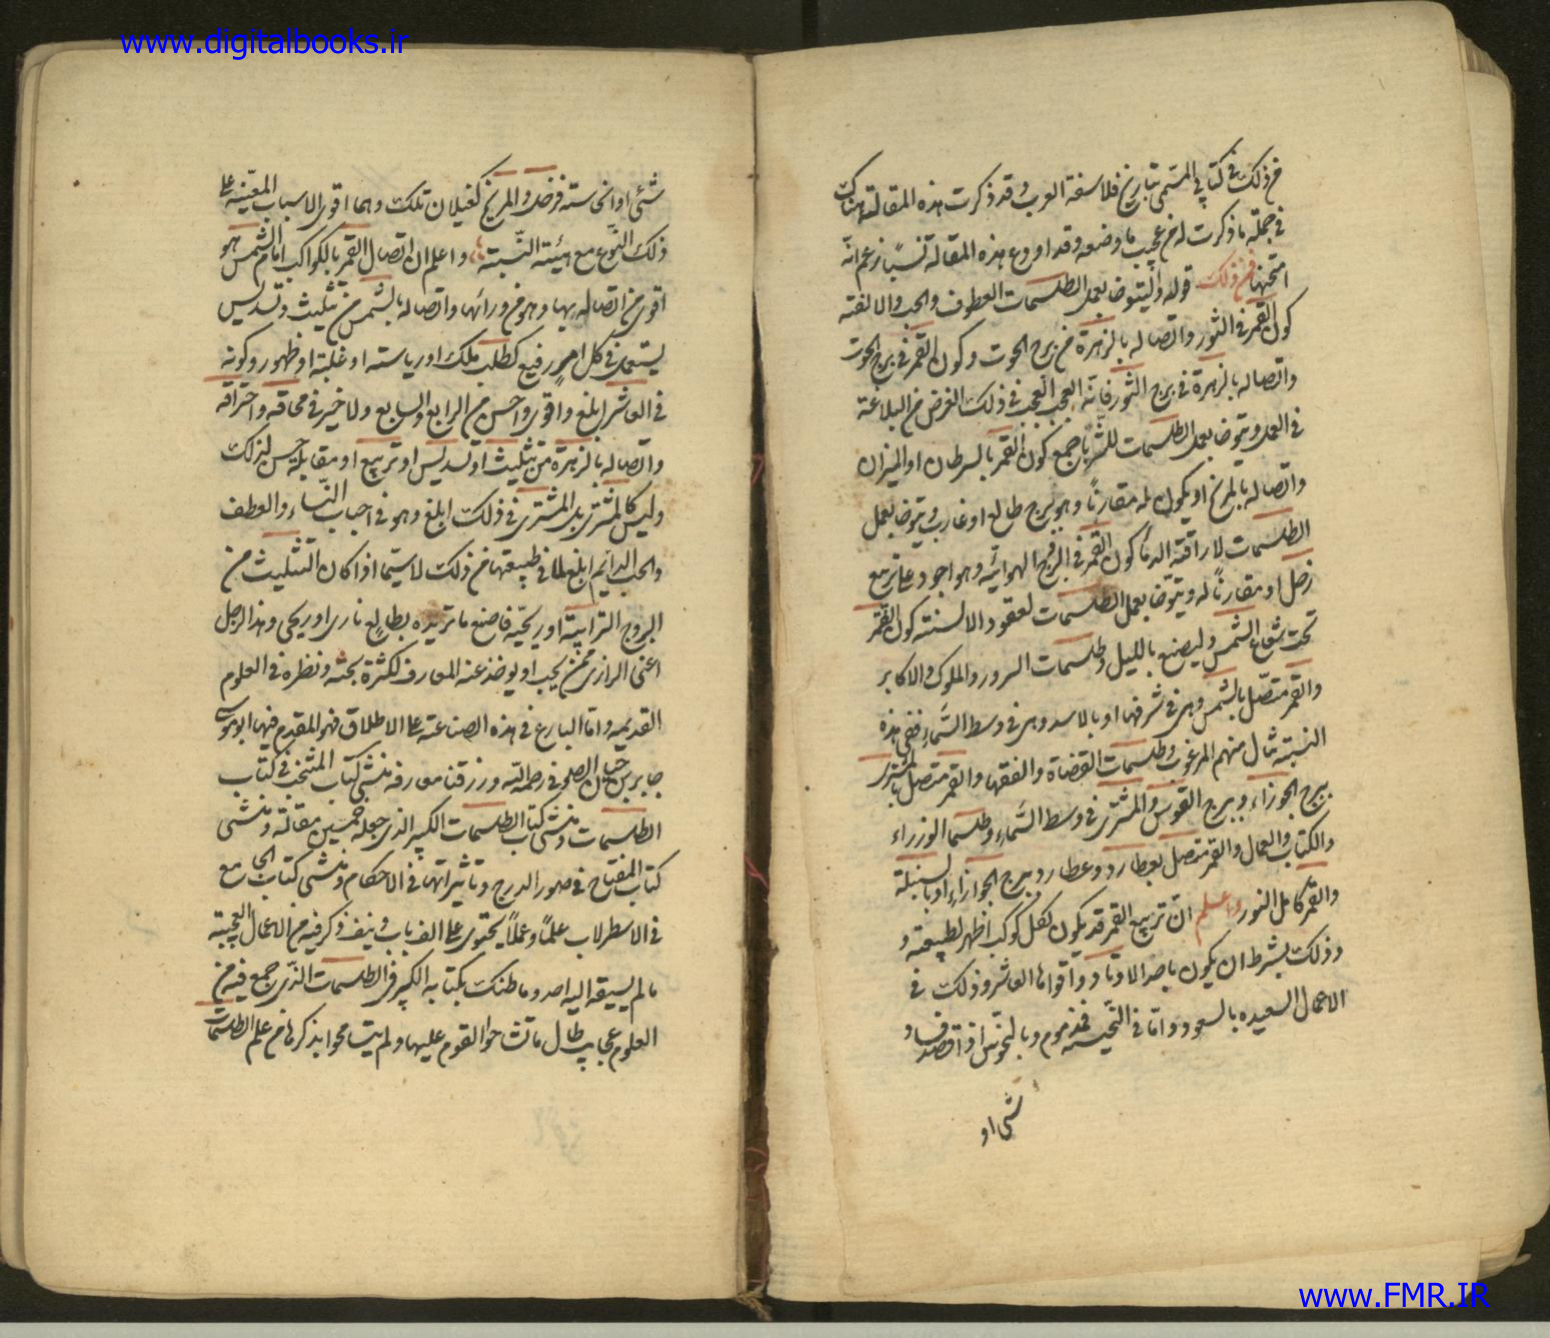 www.digitalbooks.ir
من ذلك فى كتابى المسمى بتاريخ فلاسفة العرب وقد ذكرت هذه المقالة هناك
فى جملة ما ذكرت له من عجيب ما وضعه وقد اودع هذه المقالة نسبا زعم انه
امتحنها فمن ذلك قوله وليتوخ بعمل الطلسمات العطوف والحب والالفة
كون القمر فى الثور واتصاله بالزهرة من برج الحوت وكون القمر فى برج الحوت
واتصاله بالزهرة فى برج الثور فانه العجب العجب فى ذلك الغرض من البلاغة
فى العمل ويتوخا بعمل الطلسمات للشر باجمع كون القمر بالسرطان او الميزان
واتصاله بالمريخ او يكون له مقارنا وهو ببرج طالع او غارب ويتوخا بعمل
الطلسمات لاراقة الدماء كون القمر فى البروج الهوائية وهو اجود على تربيع
زحل او مقارنا له ويتوخا بعمل الطلسمات لعقود الالسنة كون القمر
تحت شعاع الشمس وليصنع بالليل وطلسمات السرور والملوك والاكابر
والقمر متصل بالشمس وهى فى شرفها او بالاسد وهى فى وسط السماء ففى هذه
النسبة تنال منهم المرغوب وطلسمات القضاة والفقهاء والقمر متصل بالمشترى
ببرج الجوزاء وببرج القوس والمشترى فى وسط السماء وطلسما الوزراء
والكتاب والعمال والقمر متصل بعطارد وعطارد ببرج الجوازاء او بالسنبلة
والقمر كامل النور واعلم ان تربيع القمر قد يكون لكل كوكب اظهر لطبيعته و
وذلك بشرط ان يكون باحد الاوتاد واقواها العاشر وذلك فى
الاعمال السعيده بالسعود واما فى النحيسة فمذموم وبالنحوس اذا قصد فساد
شى او
شئ او انحاسته فزحل والمريخ كفيلان تلك وهما اقوى الاسباب المعينة على
ذلك النوع مع هيئة النسبة واعلم ان اتصال القمر بالكواكب امام الشمس هو
اقوى من اتصاله بها وهو من ورائها واتصاله بالشمس من تثليث وتسديس
يستعمل فى كل امر رفيع كطلب ملك او رياسته او غلبة او ظهور وكونه
فى العاشر ابلغ واقوى واحسن من الرابع والسابع ولا خير فى محاقه واحتراقه
واتصاله بالزهرة من تثليث او تسديس او تربيع او مقابلة حسن لذلك
وليس كالمشترى بل المشترى فى ذلك ابلغ وهو فى احباب النساء والعطف
والحب الدايم ابلغ لما فى طبيعتها من ذلك لا سيما اذا كان التثليث من
البروج الترابية او ريحية فاصنع ما تريده بطالع نارى او ريحى وهذا الرجل
اعنى الرازى ممن يجب ان يوخذ عنه المعارف لكثرة بحثه ونظره فى العلوم
القديمه واما البارع فى هذه الصناعة على الاطلاق فهو المقدم فيها ابو موسى
جابر بن حيان الصلحى رحمه الله ورزقنا معارفه منشى كتاب المنتخب فى كتاب
الطلسمات ومنشى كتاب الطلسمات الكبير الذى جعله خمسين مقالة ومنشى
كتاب المفتاح فى صور الدرج وتاثيراتها فى الاحكام ومنشى كتاب الجامع
فى الاسطرلاب علما وعملا يحتوى على الف باب ونيف ذكر فيه من الاعمال العجيبة
ما لم يسبقه اليه احد وما ظنك بكتابه الكبير فى الطلسمات الذى جمع فيه من
العلوم عجايب طال ما تشاحوا القوم عليها ولم يتسامحوا بذكرها من علم الطلسمات
www.FMR.IR